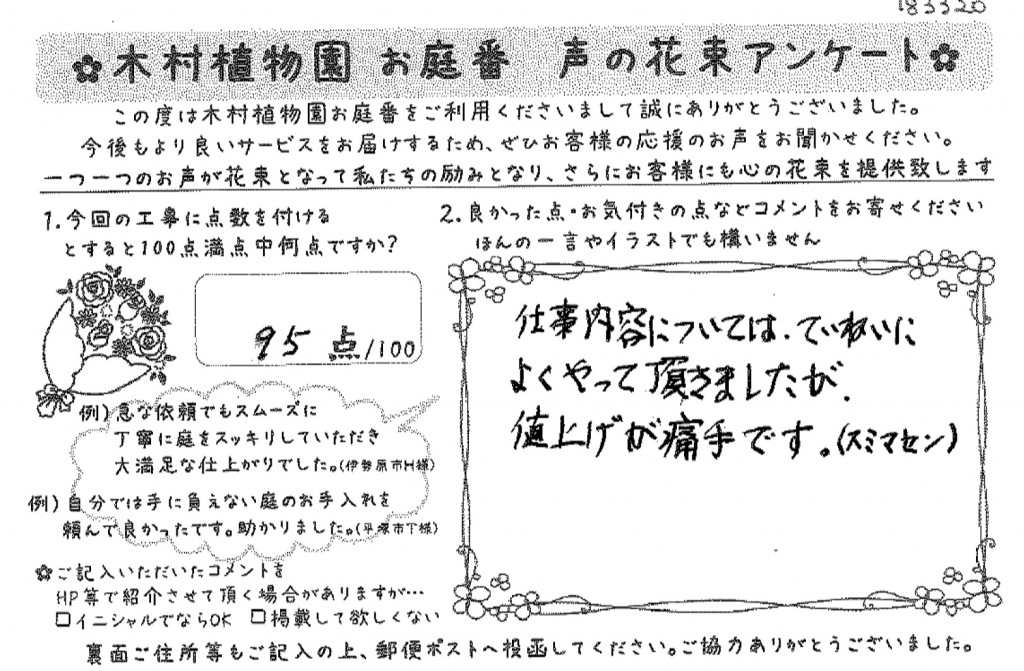 183320
木村植物園 お庭番 声の花束アンケート
この度は木村植物園お庭番をご利用くださいまして誠にありがとうございました。
今後もより良いサービスをお届けするため、ぜひお客様の応援のお声をお聞かせください。
一つ一つのお声が花束となって私たちの励みとなり、さらにお客様にも心の花束を提供致します
1.今回の工事に点数を付ける
とすると100点満点中何点ですか?
95 点/100
例)急な依頼でもスムーズに
丁寧に庭をスッキリしていただき
大満足な仕上がりでした。(伊勢原市H様)
例)自分では手に負えない庭のお手入れを
頼んで良かったです。助かりました。(平塚市T様)
✿ご記入いただいたコメントを
HP等で紹介させて頂く場合がありますが…
□イニシャルでならOK □掲載して欲しくない
2.良かった点・お気付きの点などコメントをお寄せください
ほんの一言やイラストでも構いません
仕事内容については、ていねいに
よくやって頂きましたが、
値上げが痛手です。(スミマセン)
裏面ご住所等もご記入の上、郵便ポストへ投函してください。ご協力ありがとうございました。